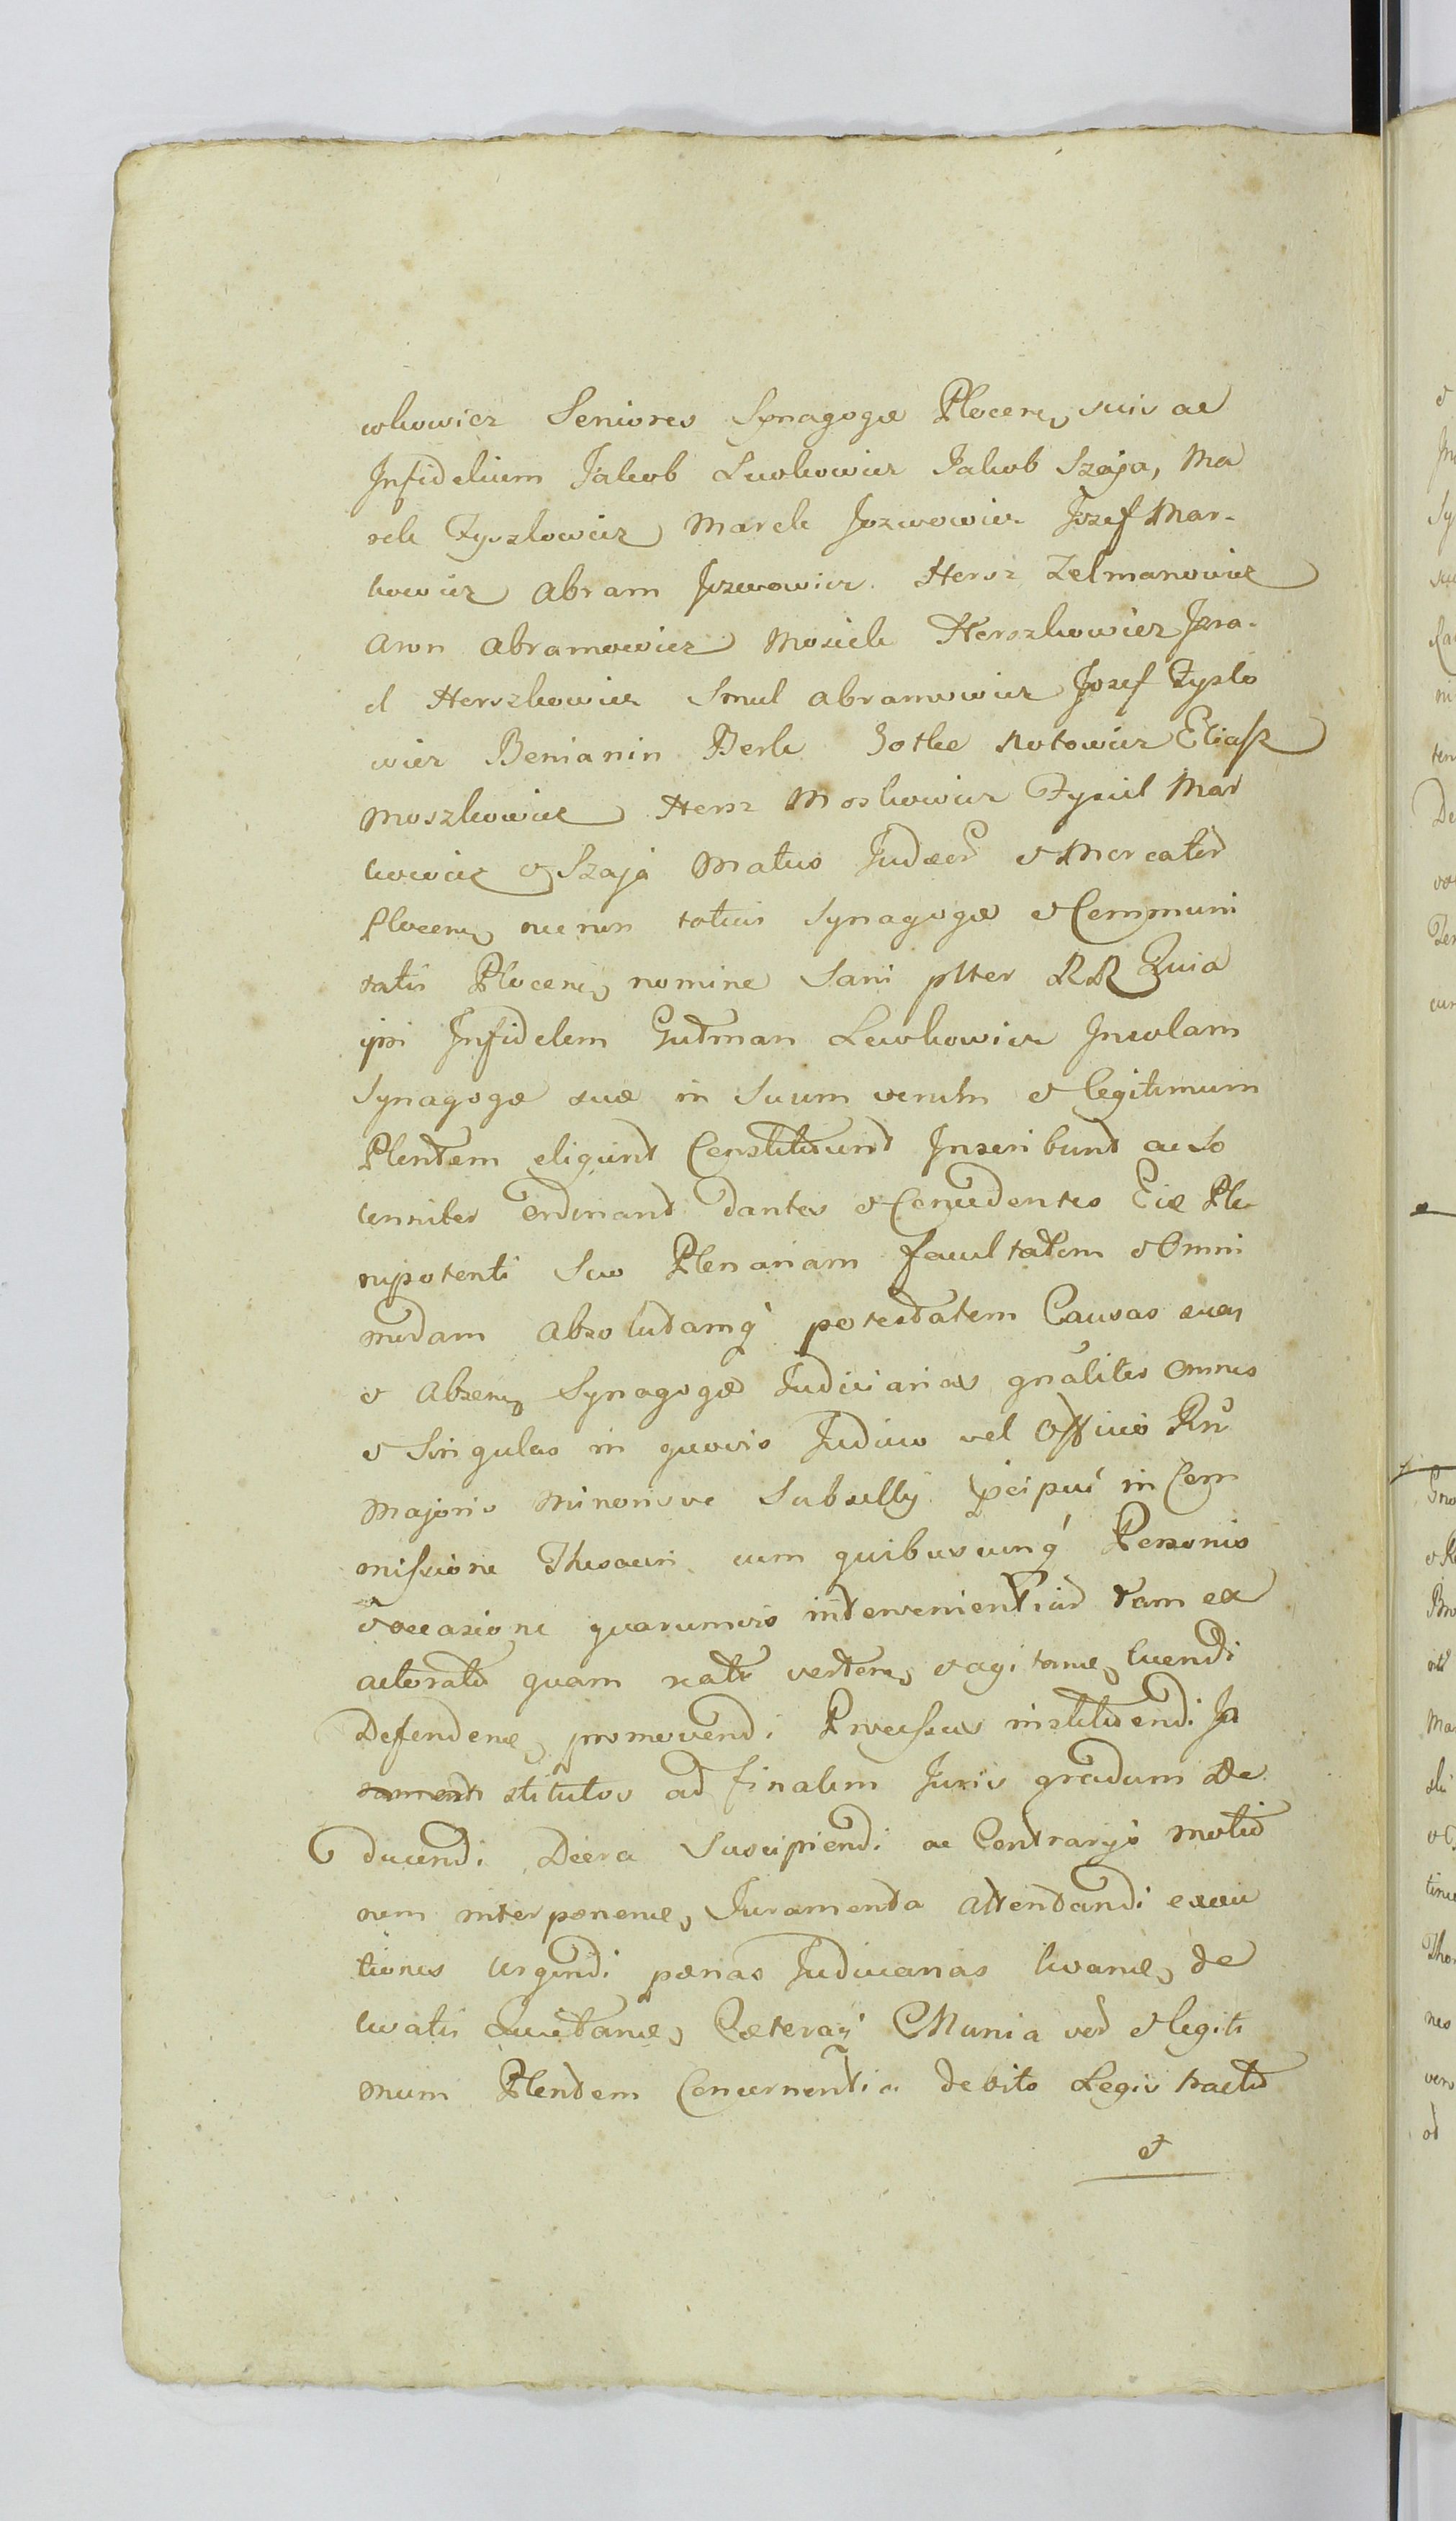 wkowicz Seniores Synagogæ Plocen, suis ac
Infidelium Jakob Lewkowicz Jakob Szaja, Ma
rek Fyszlowicz Marek Jozwowicz Jozef Mar-
kowicz Abram Jozwowicz Hersz Zelmanowicz
Aron Abramowicz Mosiek Herszkowicz Izra-
el Herszkowicz Smul Abramowicz Jozef Fyszlo
wicz Beniamin Berk Jotke Notowicz Eliasz
Moszkowicz Hersz Moskowicz Fyszel Mar
kowicz et Szaja Matus Judæor et Mercator
Plocen, nec non totius Synagogæ et Communi
tatis Plocen, nomine Sani pltter RR Quia
ipsi Infidelem Gudman Lewkowicz Incolam
Synagogæ suæ in Suum verum et legitimum
Plentem eligunt Constituunt Inscribunt ac So
lenniter ordinant dantes et Concedentes Eidæ Ple
nipotenti Suo Plenariam facultatem et Omni
modam absolutamq potestatem Causas suas
et Absen, Synagogæ Judiciarias gnaliter omnes
et Singulas in quovis Judicio vel Officio Rni
Majoris Minorisve Subsellij pcipue in Com
missione Thesauri cum quibuscunq Personis
et occasione quarumvis intervenientiar tam ex
actoratu quam reatu verten, et agitan, luendi
Defenden, promovendi Processus instituendi In
stitutos ad finalem Juris gradum De
ducendi Decra Suscipiendi ac Contrarys motio
nem interponen, Juramenta attentandi execu
tiones urgendi pænas Judiciarias luan, de
luatis Quietan, Cæteraq Munia ver et legiti
mum Plentem Concernentia debito Legis tractu
et